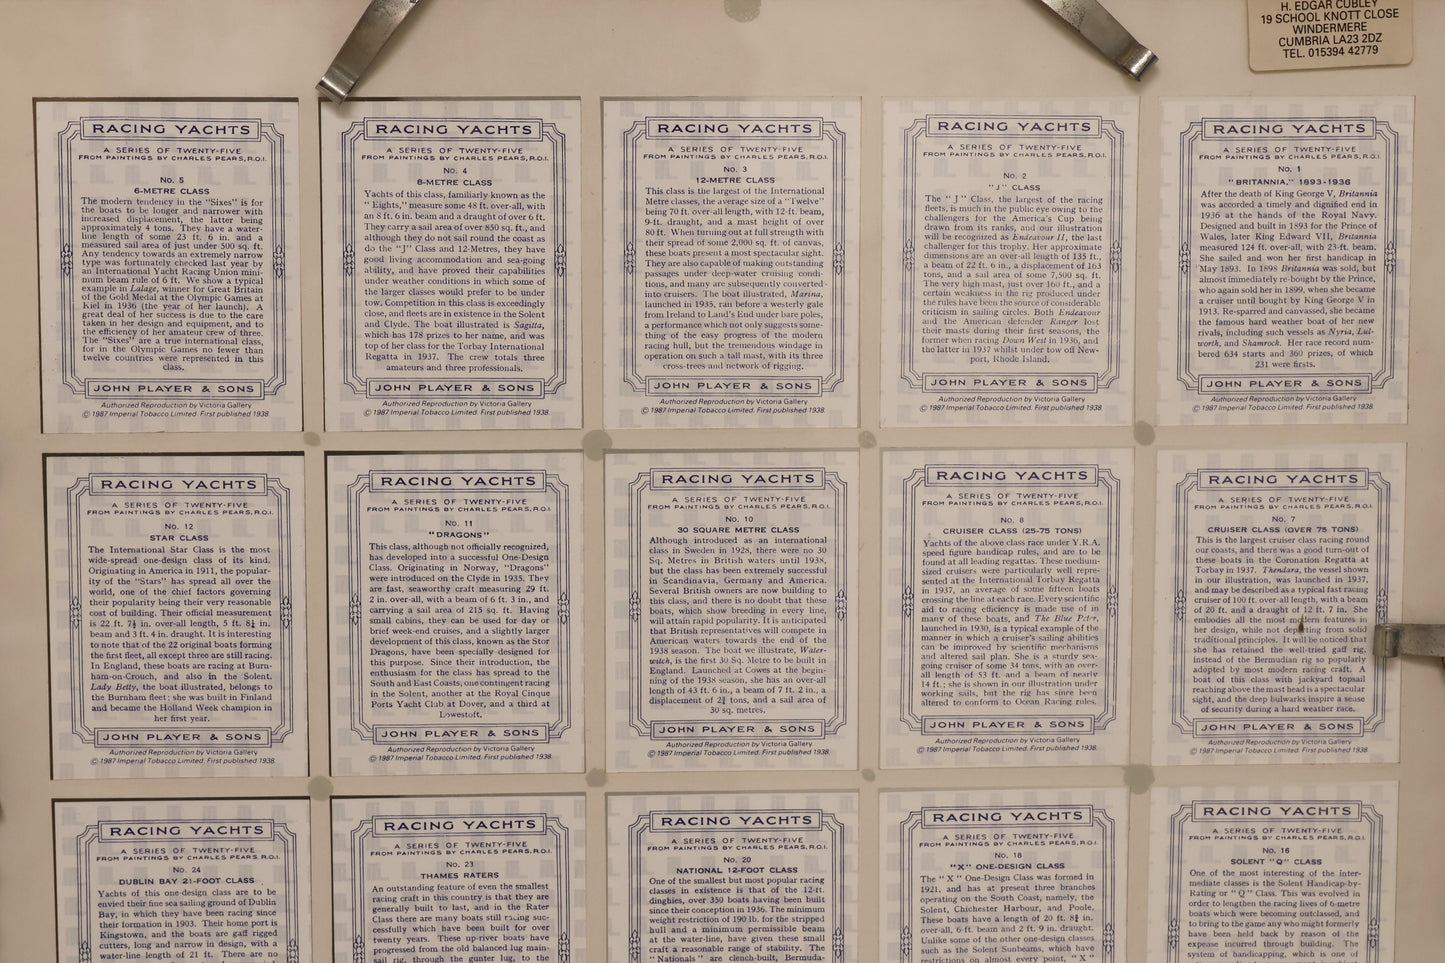 H. EDGAR CUBLEY
19 SCHOOL KNOTT CLOSE
WINDERMERE
CUMBRIA LA23 2DZ
TEL. 015394 42779
RACING YACHTS
A SERIES OF TWENTY-FIVE
FROM PAINTINGS BY CHARLES PEARS, R.O.I.
No. 5
6-METRE CLASS
The modern tendency in the "Sixes" is for
the boats to be longer and narrower with
increased displacement, the latter being
approximately 4 tons. They have a water-
line length of some 23 ft. 6 in. and a
measured sail area of just under 500 sq. ft.
Any tendency towards an extremely narrow
type was fortunately checked last year by
an International Yacht Racing Union mini-
mum beam rule of 6 ft. We show a typical
example in Lalage, winner for Great Britain
of the Gold Medal at the Olympic Games at
Kiel in 1936 (the year of her launch). A
great deal of her success is due to the care
taken in her design and equipment, and to
the efficiency of her amateur crew of three.
The "Sixes" are a true international class,
for in the Olympic Games no fewer than
twelve countries were represented in this
class.
JOHN PLAYER & SONS
Authorized Reproduction by Victoria Gallery
© 1987 Imperial Tobacco Limited. First published 1938.
RACING YACHTS
A SERIES OF TWENTY-FIVE
FROM PAINTINGS BY CHARLES PEARS, R.O.I.
No. 4
8-METRE CLASS
Yachts of this class, familiarly known as the
"Eights," measure some 48 ft. over-all, with
an 8 ft. 6 in. beam and a draught of over 6 ft.
They carry a sail area of over 850 sq. ft., and
although they do not sail round the coast as
do the "J" Class and 12-Metres, they have
good living accommodation and sea-going
ability, and have proved their capabilities
under weather conditions in which some of
the larger classes would prefer to be under
tow. Competition in this class is exceedingly
close, and fleets are in existence in the Solent
and Clyde. The boat illustrated is Sagitta,
which has 178 prizes to her name, and was
top of her class for the Torbay International
Regatta in 1937. The crew totals three
amateurs and three professionals.
JOHN PLAYER & SONS
Authorized Reproduction by Victoria Gallery
© 1987 Imperial Tobacco Limited. First published 1938.
RACING YACHTS
A SERIES OF TWENTY-FIVE
FROM PAINTINGS BY CHARLES PEARS, R.O.I.
No. 3
12-METRE CLASS
This class is the largest of the International
Metre classes, the average size of a "Twelve"
being 70 ft. over-all length, with 12-ft. beam,
9-ft. draught, and a mast height of over
80 ft. When turning out at full strength with
their spread of some 2,000 sq. ft. of canvas,
these boats present a most spectacular sight.
They are also capable of making outstanding
passages under deep-water cruising condi-
tions, and many are subsequently converted
into cruisers. The boat illustrated, Marina,
launched in 1935, ran before a westerly gale
from Ireland to Land's End under bare poles,
a performance which not only suggests some-
thing of the easy progress of the modern
racing hull, but the tremendous windage in
operation on such a tall mast, with its three
cross-trees and network of rigging.
JOHN PLAYER & SONS
Authorized Reproduction by Victoria Gallery
© 1987 Imperial Tobacco Limited. First published 1938.
RACING YACHTS
A SERIES OF TWENTY-FIVE
FROM PAINTINGS BY CHARLES PEARS, R.O.I.
No. 2
"J" CLASS
The "J" Class, the largest of the racing
fleets, is much in the public eye owing to the
challengers for the America's Cup being
drawn from its ranks, and our illustration
will be recognized as Endeavour II, the last
challenger for this trophy. Her approximate
dimensions are an over-all length of 135 ft.,
a beam of 22 ft. 6 in., a displacement of 163
tons, and a sail area of some 7,500 sq. ft.
The very high mast, just over 160 ft., and a
certain weakness in the rig produced under
the rules have been the source of considerable
criticism in sailing circles. Both Endeavour
and the American defender Ranger lost
their masts during their first seasons, the
former when racing Down West in 1936, and
the latter in 1937 whilst under tow off New-
port, Rhode Island.
JOHN PLAYER & SONS
Authorized Reproduction by Victoria Gallery
© 1987 Imperial Tobacco Limited. First published 1938.
RACING YACHTS
A SERIES OF TWENTY-FIVE
FROM PAINTINGS BY CHARLES PEARS, R.O.I.
No. 1
"BRITANNIA," 1893-1936
After the death of King George V, Britannia
was accorded a timely and dignified end in
1936 at the hands of the Royal Navy.
Designed and built in 1893 for the Prince of
Wales, later King Edward VII, Britannia
measured 124 ft. over-all, with 23-ft. beam.
She sailed and won her first handicap in
May 1893. In 1898 Britannia was sold, but
almost immediately re-bought by the Prince,
who again sold her in 1899, when she became
a cruiser until bought by King George V in
1913. Re-sparred and canvassed, she became
the famous hard weather boat of her new
rivals, including such vessels as Nyria, Lul-
worth, and Shamrock. Her race record num-
bered 634 starts and 360 prizes, of which
231 were firsts.
JOHN PLAYER & SONS
Authorized Reproduction by Victoria Gallery
© 1987 Imperial Tobacco Limited. First published 1938.
RACING YACHTS
A SERIES OF TWENTY-FIVE
FROM PAINTINGS BY CHARLES PEARS, R.O.I.
No. 12
STAR CLASS
The International Star Class is the most
wide-spread one-design class of its kind.
Originating in America in 1911, the popular-
ity of the "Stars" has spread all over the
world, one of the chief factors governing
their popularity being their very reasonable
cost of building. Their official measurement
is 22 ft. 7½ in. over-all length, 5 ft. 8¼ in.
beam and 3 ft. 4 in. draught. It is interesting
to note that of the 22 original boats forming
the first fleet, all except three are still racing.
In England, these boats are racing at Burn-
ham-on-Crouch, and also in the Solent.
Lady Betty, the boat illustrated, belongs to
the Burnham fleet; she was built in Finland
and became the Holland Week champion in
her first year.
JOHN PLAYER & SONS
Authorized Reproduction by Victoria Gallery
© 1987 Imperial Tobacco Limited. First published 1938.
RACING YACHTS
A SERIES OF TWENTY-FIVE
FROM PAINTINGS BY CHARLES PEARS, R.O.I.
No. 11
"DRAGONS"
This class, although not officially recognized,
has developed into a successful One-Design
Class. Originating in Norway, "Dragons"
were introduced on the Clyde in 1935. They
are fast, seaworthy craft measuring 29 ft.
2 in. over-all, with a beam of 6 ft. 3 in., and
carrying a sail area of 215 sq. ft. Having
small cabins, they can be used for day or
brief week-end cruises, and a slightly larger
development of this class, known as the Stor
Dragons, have been specially designed for
this purpose. Since their introduction, the
enthusiasm for the class has spread to the
South and East Coasts, one contingent racing
in the Solent, another at the Royal Cinque
Ports Yacht Club at Dover, and a third at
Lowestoft.
JOHN PLAYER & SONS
Authorized Reproduction by Victoria Gallery
© 1987 Imperial Tobacco Limited. First published 1938.
RACING YACHTS
A SERIES OF TWENTY-FIVE
FROM PAINTINGS BY CHARLES PEARS, R.O.I.
No. 10
30 SQUARE METRE CLASS
Although introduced as an international
class in Sweden in 1928, there were no 30
Sq. Metres in British waters until 1938,
but the class has been extremely successful
in Scandinavia, Germany and America.
Several British owners are now building to
this class, and there is no doubt that these
boats, which show breeding in every line,
will attain rapid popularity. It is anticipated
that British representatives will compete in
American waters towards the end of the
1938 season. The boat we illustrate, Water-
witch, is the first 30 Sq. Metre to be built in
England. Launched at Cowes at the begin-
ning of the 1938 season, she has an over-all
length of 43 ft. 6 in., a beam of 7 ft. 2 in., a
displacement of 2¾ tons, and a sail area of
30 sq. metres.
JOHN PLAYER & SONS
Authorized Reproduction by Victoria Gallery
© 1987 Imperial Tobacco Limited. First published 1938.
RACING YACHTS
A SERIES OF TWENTY-FIVE
FROM PAINTINGS BY CHARLES PEARS, R.O.I.
No. 8
CRUISER CLASS (25-75 TONS)
Yachts of the above class race under Y.R.A.
speed figure handicap rules, and are to be
found at all leading regattas. These medium-
sized cruisers were particularly well repre-
sented at the International Torbay Regatta
in 1937, an average of some fifteen boats
crossing the line at each race. Every scientific
aid to racing efficiency is made use of in
many of these boats, and The Blue Peter,
launched in 1930, is a typical example of the
manner in which a cruiser's sailing abilities
can be improved by scientific mechanisms
and altered sail plan. She is a sturdy sea-
going cruiser of some 34 tons, with an over-
all length of 53 ft. and a beam of nearly
14 ft.; she is shown in our illustration under
working sails, but the rig has since been
altered to conform to Ocean Racing rules.
JOHN PLAYER & SONS
Authorized Reproduction by Victoria Gallery
© 1987 Imperial Tobacco Limited. First published 1938.
RACING YACHTS
A SERIES OF TWENTY-FIVE
FROM PAINTINGS BY CHARLES PEARS, R.O.I.
No. 7
CRUISER CLASS (OVER 75 TONS)
This is the largest cruiser class racing round
our coasts, and there was a good turn-out of
these boats in the Coronation Regatta at
Torbay in 1937. Thendara, the vessel shown
in our illustration, was launched in 1937,
and may be described as a typical fast racing
cruiser of 100 ft. over-all length, with a beam
of 20 ft. and a draught of 12 ft. 7 in. She
embodies all the most modern features in
her design, while not departing from solid
traditional principles. It will be noticed that
she has retained the well-tried gaff rig,
instead of the Bermudian rig so popularly
adopted by most modern racing craft. A
boat of this class with jackyard topsail
reaching above the mast head is a spectacular
sight, and the deep bulwarks inspire a sense
of security during a hard weather race.
JOHN PLAYER & SONS
Authorized Reproduction by Victoria Gallery
© 1987 Imperial Tobacco Limited. First published 1938.
RACING YACHTS
A SERIES OF TWENTY-FIVE
FROM PAINTINGS BY CHARLES PEARS, R.O.I.
No. 24
DUBLIN BAY 21-FOOT CLASS
Yachts of this one-design class are to be
envied their fine sea sailing ground of Dublin
Bay, in which they have been racing since
their formation in 1903. Their home port is
Kingstown, and the boats are gaff rigged
cutters, long and narrow in design, with a
water-line length of 21 ft. There are no
RACING YACHTS
A SERIES OF TWENTY-FIVE
FROM PAINTINGS BY CHARLES PEARS, R.O.I.
No. 23
THAMES RATERS
An outstanding feature of even the smallest
racing craft in this country is that they are
generally built to last, and in the Rater
Class there are many boats still racing suc-
cessfully which have been built for over
twenty years. These up-river boats have
progressed from the old balanced lug main-
sail rig, through the gunter lug, to the
RACING YACHTS
A SERIES OF TWENTY-FIVE
FROM PAINTINGS BY CHARLES PEARS, R.O.I.
No. 20
NATIONAL 12-FOOT CLASS
One of the smallest but most popular racing
classes in existence is that of the 12-ft.
dinghies, over 350 boats having been built
since their conception in 1936. The minimum
weight restriction of 190 lb. for the stripped
hull and a minimum permissible beam
at the water-line, have given these small
craft a reasonable range of stability. The
"Nationals" are clench-built, Bermuda-
RACING YACHTS
A SERIES OF TWENTY-FIVE
FROM PAINTINGS BY CHARLES PEARS, R.O.I.
No. 18
"X" ONE-DESIGN CLASS
The "X" One-Design Class was formed in
1921, and has at present three branches
operating on the South Coast, namely, the
Solent, Chichester Harbour, and Poole.
These boats have a length of 20 ft. 8¾ in.
over-all, 6-ft. beam and 2 ft. 9 in. draught.
Unlike some of the other one-design classes
such as the Solent Sunbeams, which have
restrictions on almost every point, "X"
RACING YACHTS
A SERIES OF TWENTY-FIVE
FROM PAINTINGS BY CHARLES PEARS, R.O.I.
No. 16
SOLENT "Q" CLASS
One of the most interesting of the inter-
mediate classes is the Solent Handicap-by-
Rating or "Q" Class. This was evolved in
order to lengthen the racing lives of 6-metre
boats which were becoming outclassed, and
to bring to the game any who might formerly
have been held back by reason of the
expense incurred through building. The
system of handicapping, which is one of